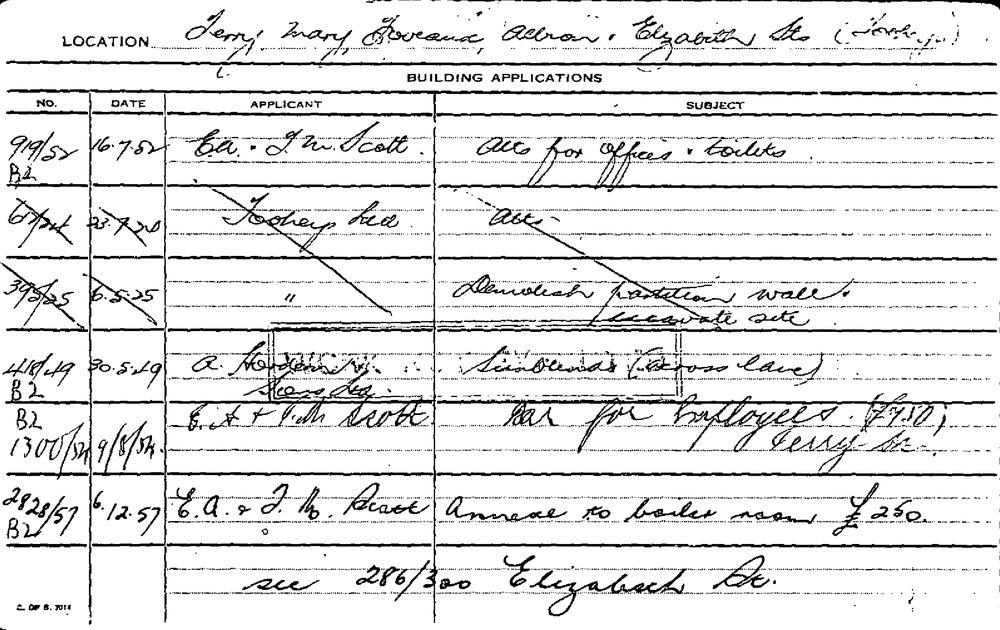 LOCATION Terry, Mary, Foveaux, Albion & Elizabeth Sts (Tooheys)
BUILDING APPLICATIONS
NO. DATE APPLICANT SUBJECT
919/52 16.7.52 E.A. & T.M. Scott. Alts for offices & toilets
B2
23.7.24 Tooheys Ltd Alts
395/25 6.5.25 " Demolish partition wall &
excavate site
418/49 30.5.49 A. Hordern & Sunblinds (across lane)
B2 Sons Ltd.
B2 E.A + T.M Scott. Bar for Employees. (£750)
1300/54 9/8/54. Terry St.
2828/57 6.12.57 E.A. & T.M. Scott Annexe to boiler room £250.
B2
see 286/300 Elizabeth St.
C. OF S. 7014